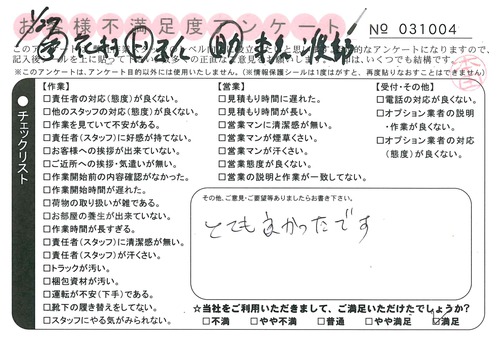 お客様不満足度アンケート
№ 031004
※このアンケートは、アンケート目的以外には使用いたしません。(※情報保護シールは1度はがすと、再度貼りなおすことはできません)
チェックリスト
【作業】
□責任者の対応(態度)が良くない。
□他のスタッフの対応(態度)が良くない。
□作業を見ていて不安がある。
□責任者(スタッフ)に好感が持てない。
□お客様への挨拶が出来ていない。
□ご近所への挨拶・気遣いが無い。
□作業開始前の内容確認がなかった。
□作業開始時間が遅れた。
□荷物の取り扱いが雑である。
□お部屋の養生が出来ていない。
□作業時間が長すぎる。
□責任者(スタッフ)に清潔感が無い。
□責任者(スタッフ)が汗くさい。
□トラックが汚い。
□梱包資材が汚い。
□運転が不安(下手)である。
□靴下の履き替えをしてない。
□スタッフにやる気がみられない。
【営業】
□見積もり時間に遅れた。
□見積もり時間が長い。
□営業マンに清潔感が無い。
□営業マンが煙草くさい。
□営業マンが汗くさい。
□営業態度が良くない。
□営業の説明と作業が一致してない。
【受付・その他】
□電話の対応が良くない。
□オプション業者の説明・作業が良くない。
□オプション業者の対応(態度)が良くない。
その他、ご意見・ご要望等ありましたらお書き下さい。
とても良かったです
☆当社をご利用いただきまして、ご満足いただけたでしょうか?
□不満 □やや不満 □普通 □やや満足 ☑満足